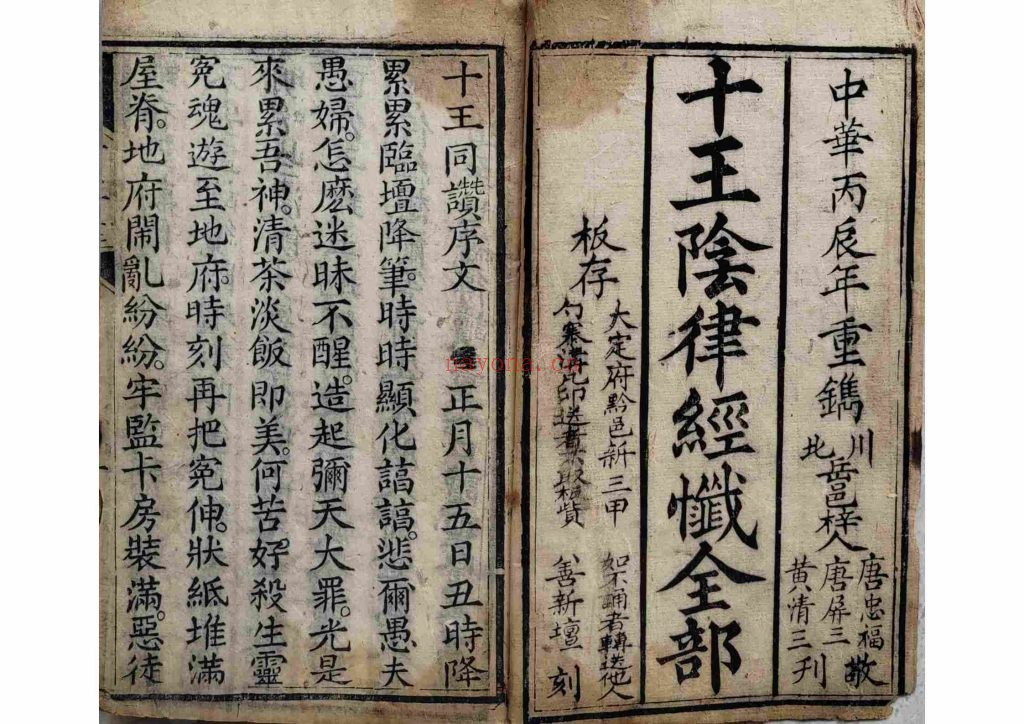 中華丙辰年重鐫
川北岳邑梓人
唐忠福
唐屏三敬
黃清三刊
十王陰律經懺全部
板存
大定府黔邑新三甲
印送者
取板貲
如不誦者轉送他人
善新壇刻
十王同讚序文
正月十五日丑時降
累累臨壇降筆。時時顯化諄諄。悲爾愚夫
愚婦。怎麽迷昧不醒。造起彌天大罪。光是
來累吾神。清茶淡飯即美。何苦好殺生靈
寃魂遊至地府。時刻再把寃伸。狀紙堆滿
屋脊。地府鬧亂紛紛。牢監卡房裝滿。惡徒